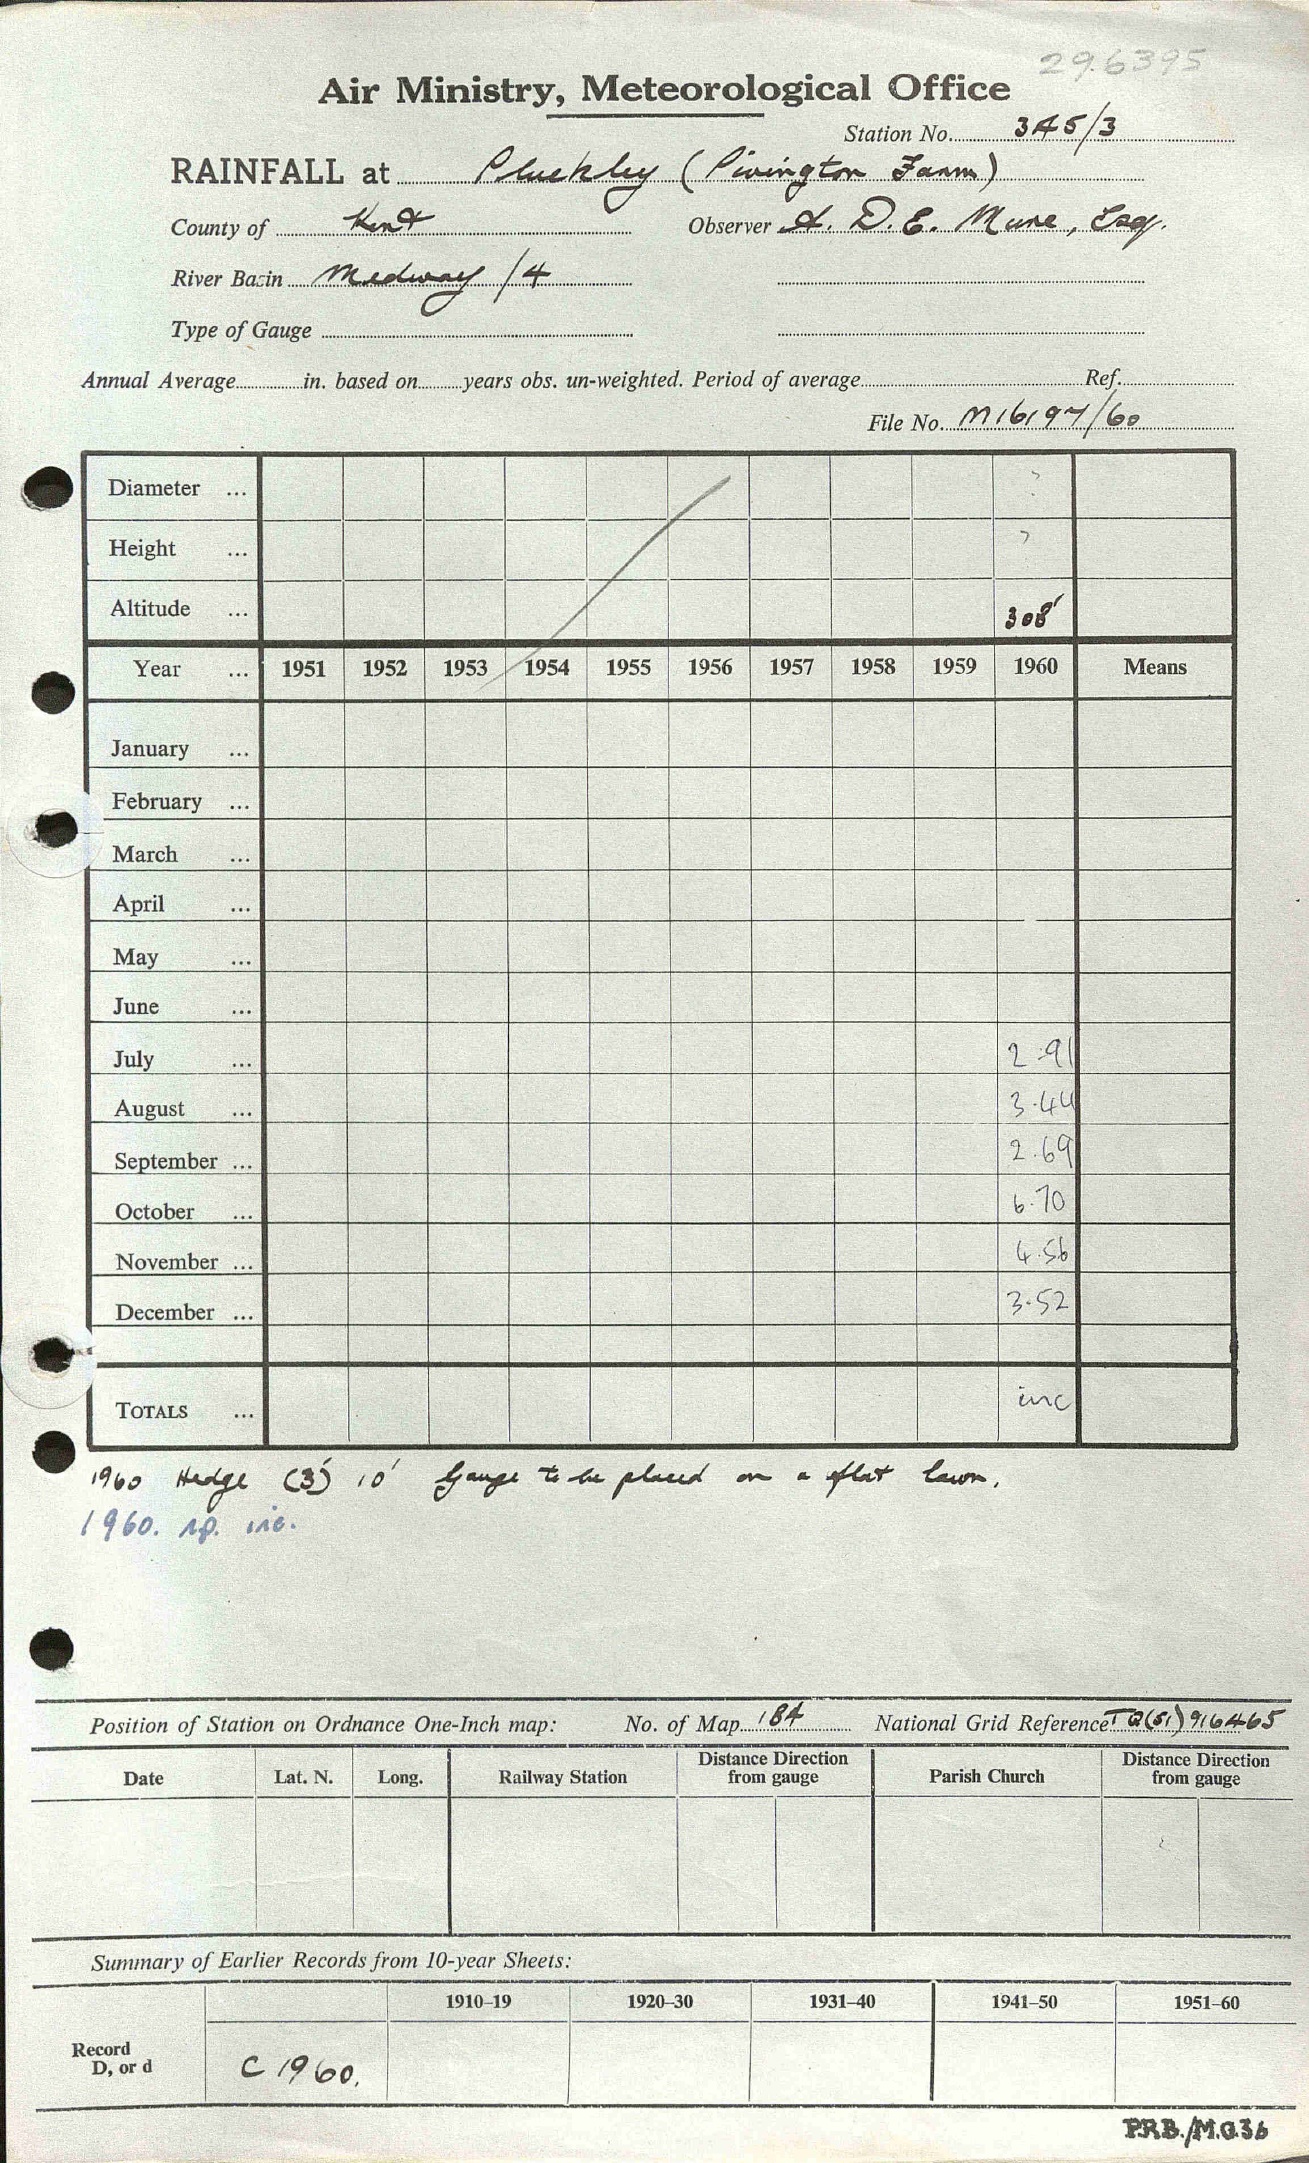 29.6395
Air Ministry, Meteorological Office
Station No. 345/3
RAINFALL at Pluckley (Pivington Farm)
County of Kent Observer A. D. E. Mure, Esq.
River Basin Medway /4
Type of Gauge
Annual Average in. based on years obs. un-weighted. Period of average Ref.
File No. M16197/60
Diameter ... ?
Height ... ?
Altitude ... 308'
Year ... 1951 1952 1953 1954 1955 1956 1957 1958 1959 1960 Means
January ...
February ...
March ...
April ...
May ...
June ...
July ... 2.91
August ... 3.44
September ... 2.69
October ... 6.70
November ... 4.56
December ... 3.52
TOTALS ... inc
1960 Hedge (3') 10' Gauge to be placed on a flat lawn.
1960. np. inc.
Position of Station on Ordnance One-Inch map: No. of Map 184 National Grid Reference TQ(51)916465
Date Lat. N. Long. Railway Station Distance Direction from gauge Parish Church Distance Direction from gauge
Summary of Earlier Records from 10-year Sheets:
1910–19 1920–30 1931–40 1941–50 1951–60
Record
D, or d C 1960.
P.R.B./M.O.36